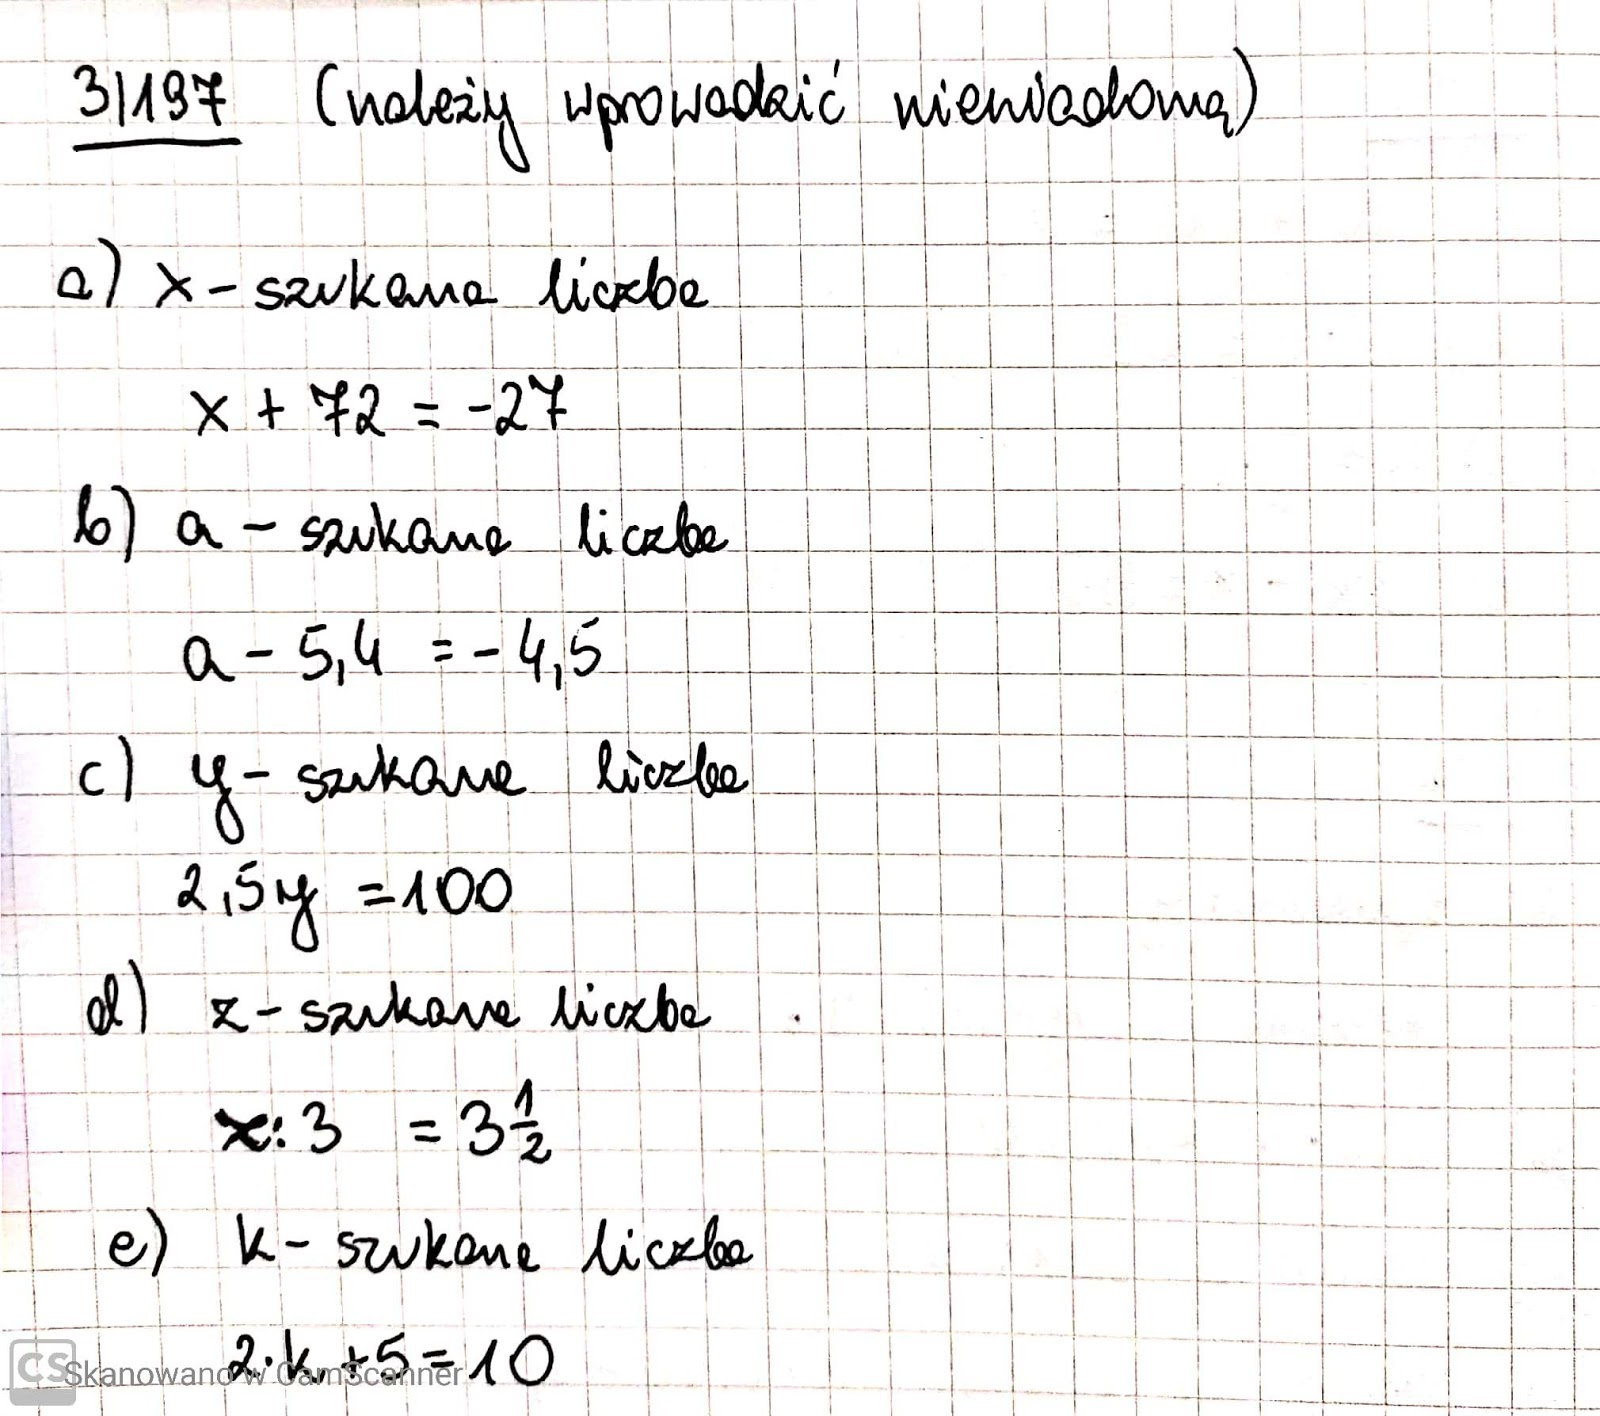 3/197 (należy wprowadzić niewiadomą)
a) x - szukana liczba
x + 72 = -27
b) a - szukana liczba
a - 5,4 = -4,5
c) y - szukana liczba
2,5y = 100
d) z - szukana liczba
z : 3 = 3 1/2
e) k - szukana liczba
2·k + 5 = 10
CS Skanowano w CamScanner